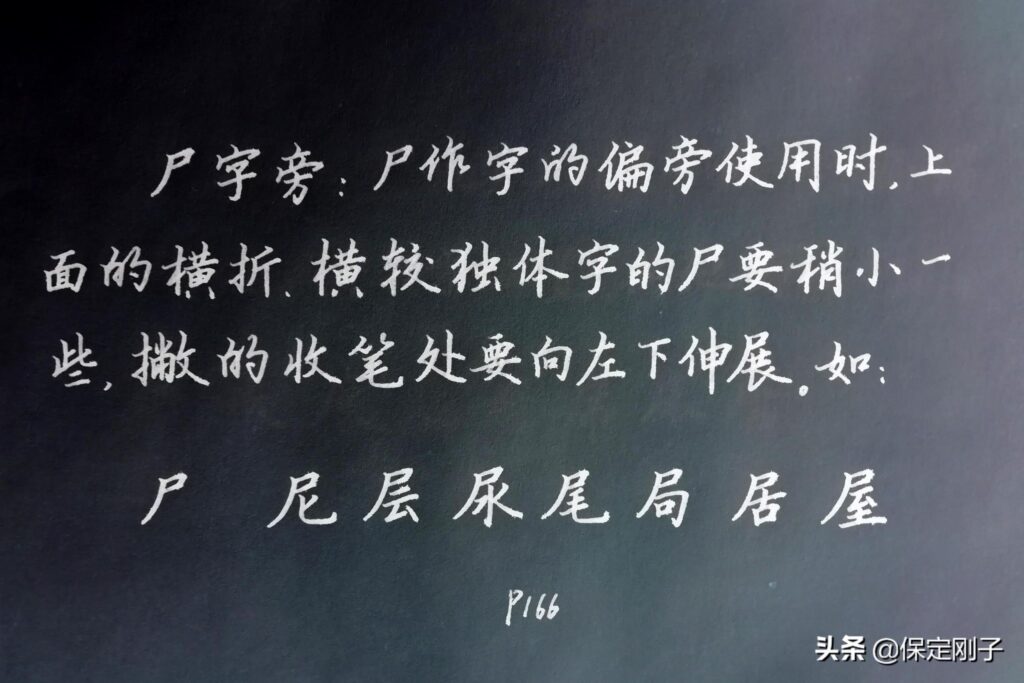 尸字旁:尸作字的偏旁使用时,上
面的横折、横较独体字的尸要稍小一
些,撇的收笔处要向左下伸展。如:
尸 尼层尿尾局居屋
P166
头条@保定刚子